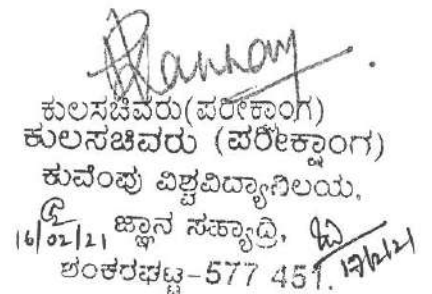 ಕುಲಸಚಿವರು(ಪರೀಕ್ಷಾಂಗ)
ಕುಲಸಚಿವರು (ಪರೀಕ್ಷಾಂಗ)
ಕುವೆಂಪು ವಿಶ್ವವಿದ್ಯಾನಿಲಯ,
16/02/21 ಜ್ಞಾನ ಸಹ್ಯಾದ್ರಿ, 17/2/21
ಶಂಕರಘಟ್ಟ-577 451.